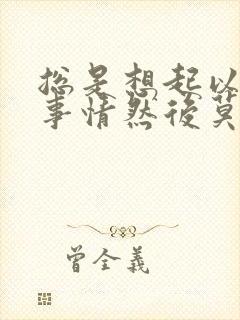 总是想起以
事情然後莫
曾全義